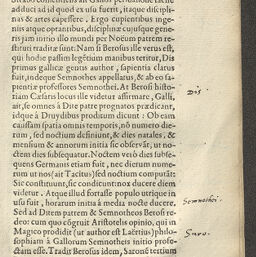 adduci ad id quod ex usu fuerit, itaque discipli-
nas & artes capessere. Ergo cupientibus inge-
niis atque oprantibus, disciplinæ cujusque gene-
ris jam initio illo mundi per Noëum patrem re-
stitui traditæ sunt. Nam si Berosus ille verus est,
qui hodie passim legetium manibus teritur, Dis
primus gallicæ gentis author, sapientia clarus
fuit, indeque Semnothes appellarus, & ab eo sa-
pientiæ professores Semnothei. At Berosi histo-
riam Cæsaris locus ille videtur affirmare, Galli,
ait, se omnes à Dite patre prognatos prædicant,
idque à Druydibus proditum dicunt : Ob eam
causam spatia omnis temporis, nō numero die-
rum, sed noctium definiunt, & dies natales, &
mensium & annorum initia sic observāt, ut no-
ctem dies subsequatur. Noctem verò dies subse-
quens Germanis etiam fuit, nec dierum nume-
rum ut nos (ait Tacitus) sed noctium computāt:
Sic constituunt, sic condicunt: nox ducere diem
videtur. Atque illud fortasse populo utrique in
usu fuit, horarum initia à media nocte ducere.
Sed ad Ditem patrem & Semnotheos Berosi re-
deo: cum quo cōgruit Aristotelis opinio, qui in
Magico prodidit (ut author est Laërtius) philo-
sophiam à Gallorum Semnotheis initio profe-
ctam esse. Tradit Berosus idem, Saronē tertium
Dis
Semnothei
Saro.